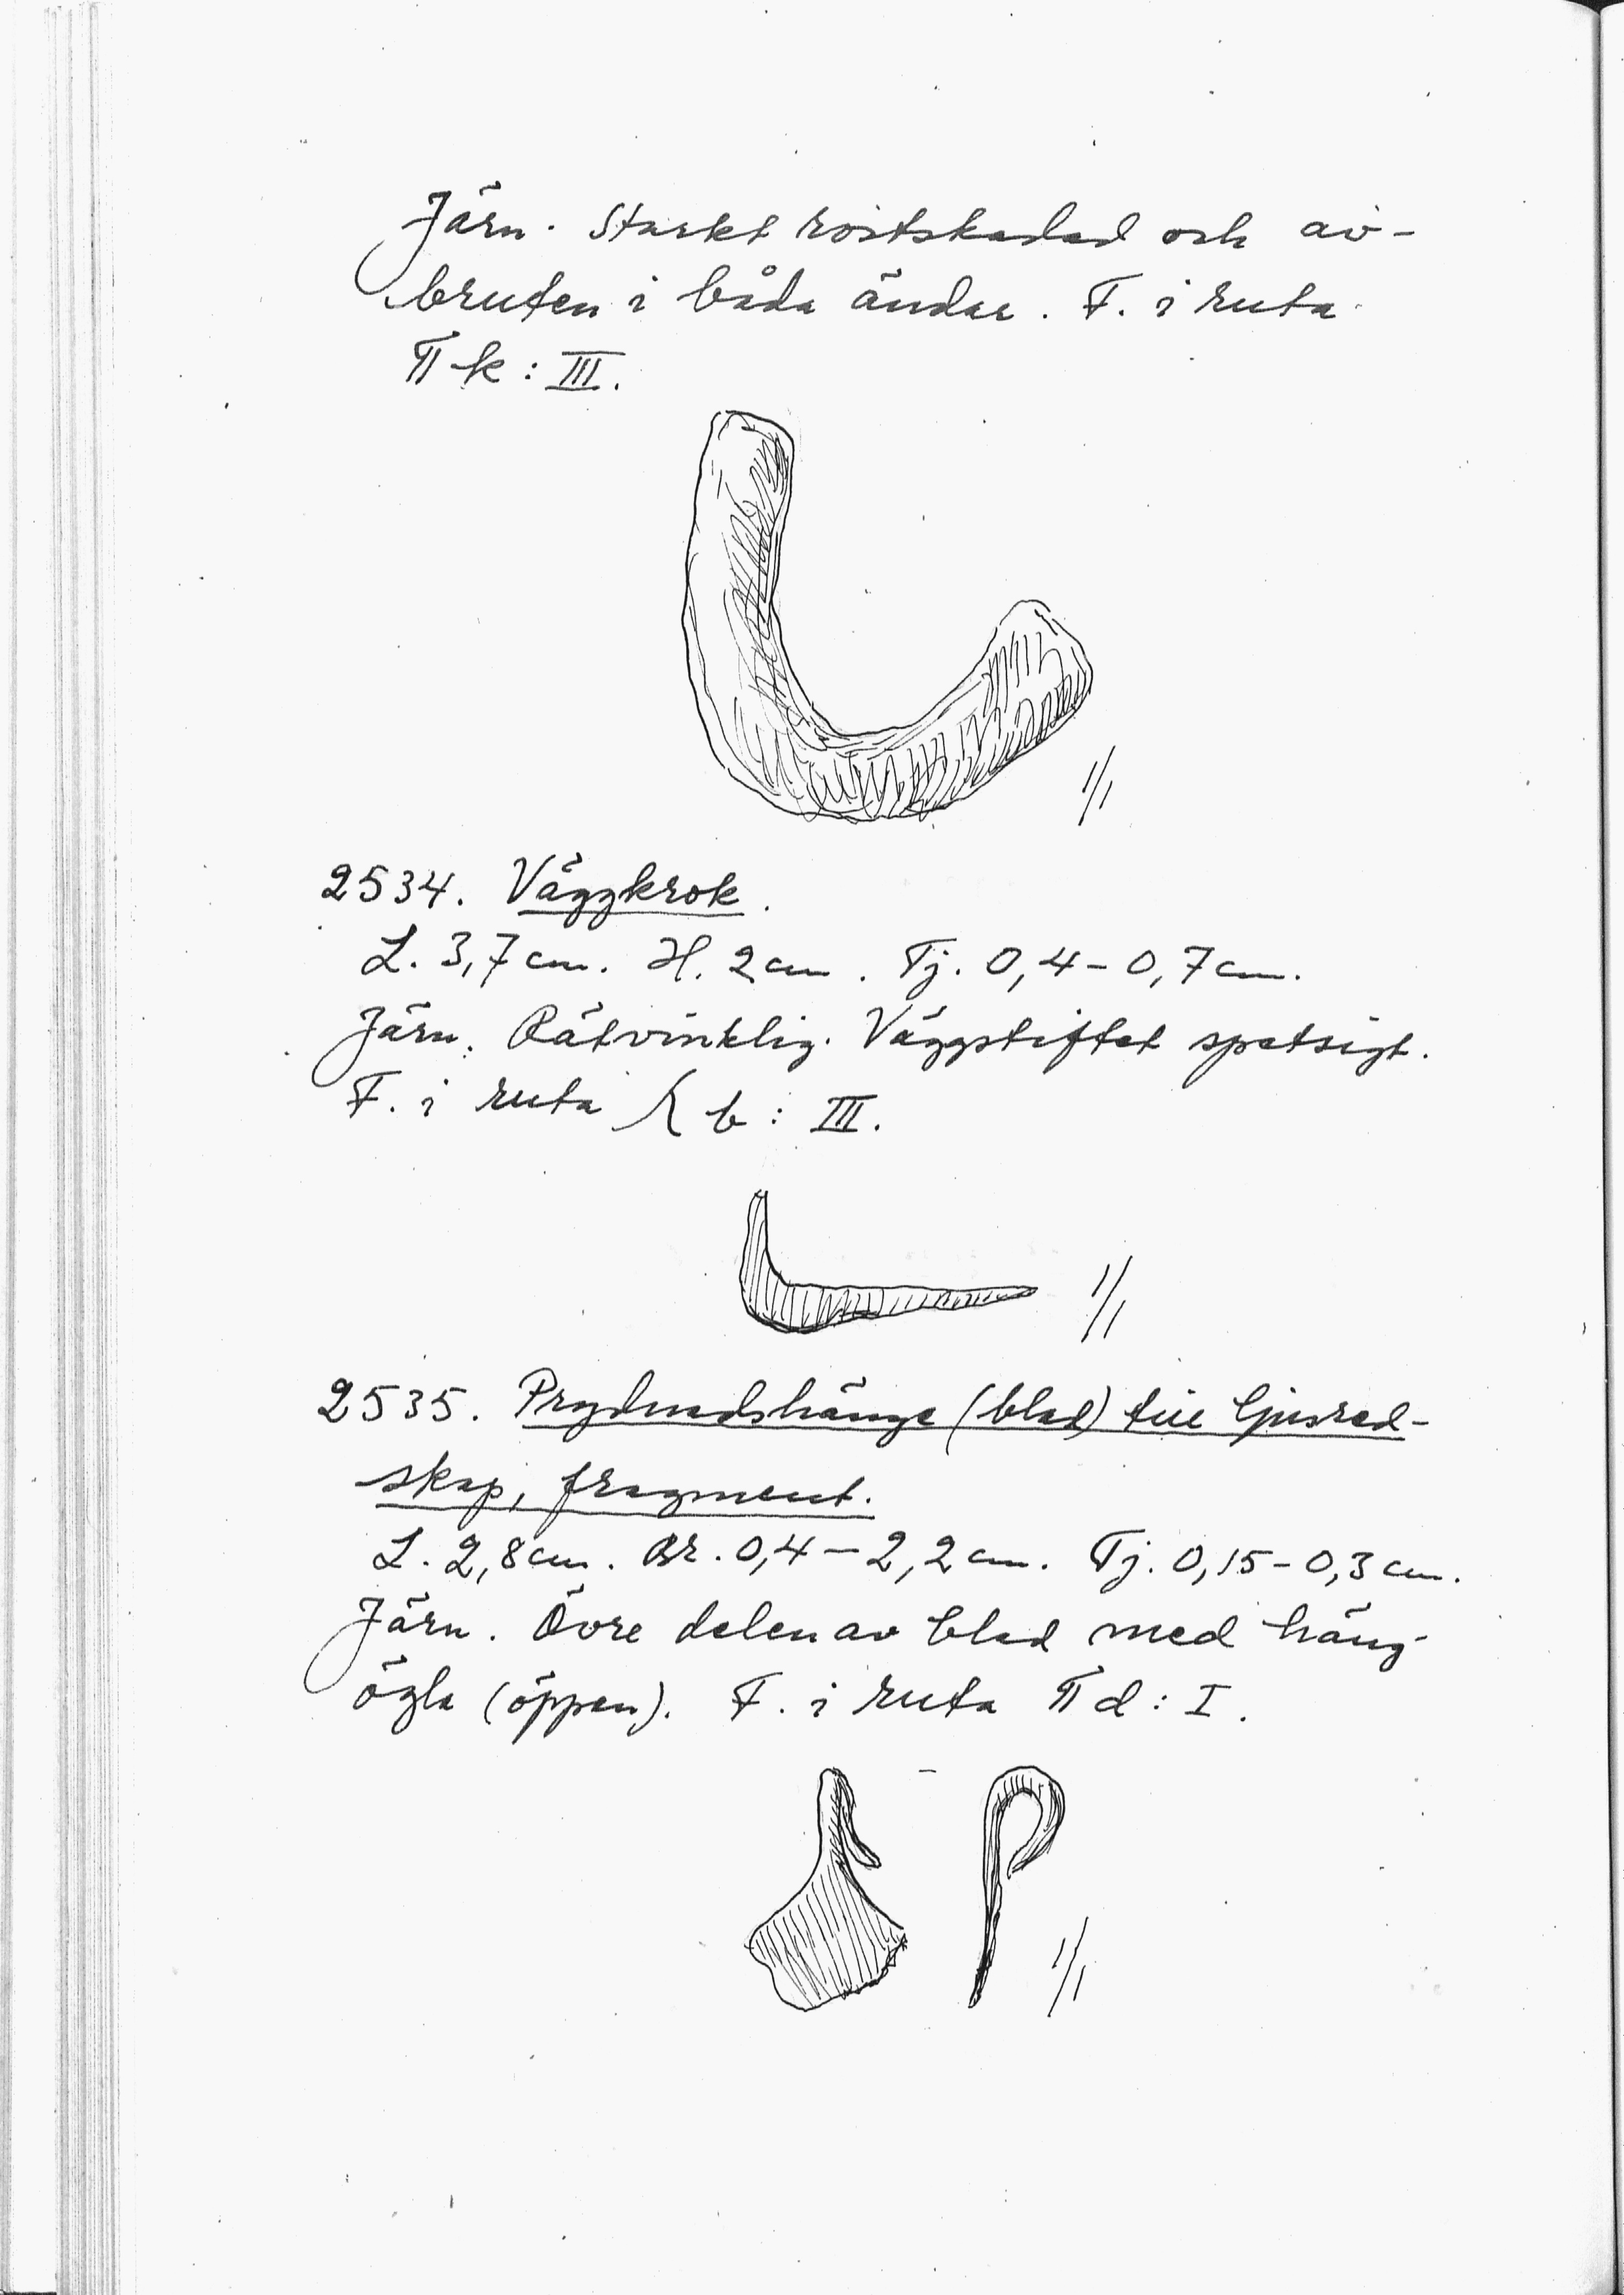 Järn. Starkt rostskadad och av-
bruten i båda ändar. F. i ruta
Π k : III.
1/1
2534. Väggkrok.
L. 3,7 cm. H. 2 cm. Tj. 0,4 – 0,7 cm.
Järn. Rätvinklig. Väggstiftet spetsigt.
F. i ruta b : III.
1/1
2535. Prydnadshänge (blad) till ljusred-
skap, fragment.
L. 2,8 cm. Br. 0,4 – 2,2 cm. Tj. 0,15 – 0,3 cm.
Järn. Övre delen av blad med häng-
ögla (öppen). F. i ruta Π d : I.
1/1